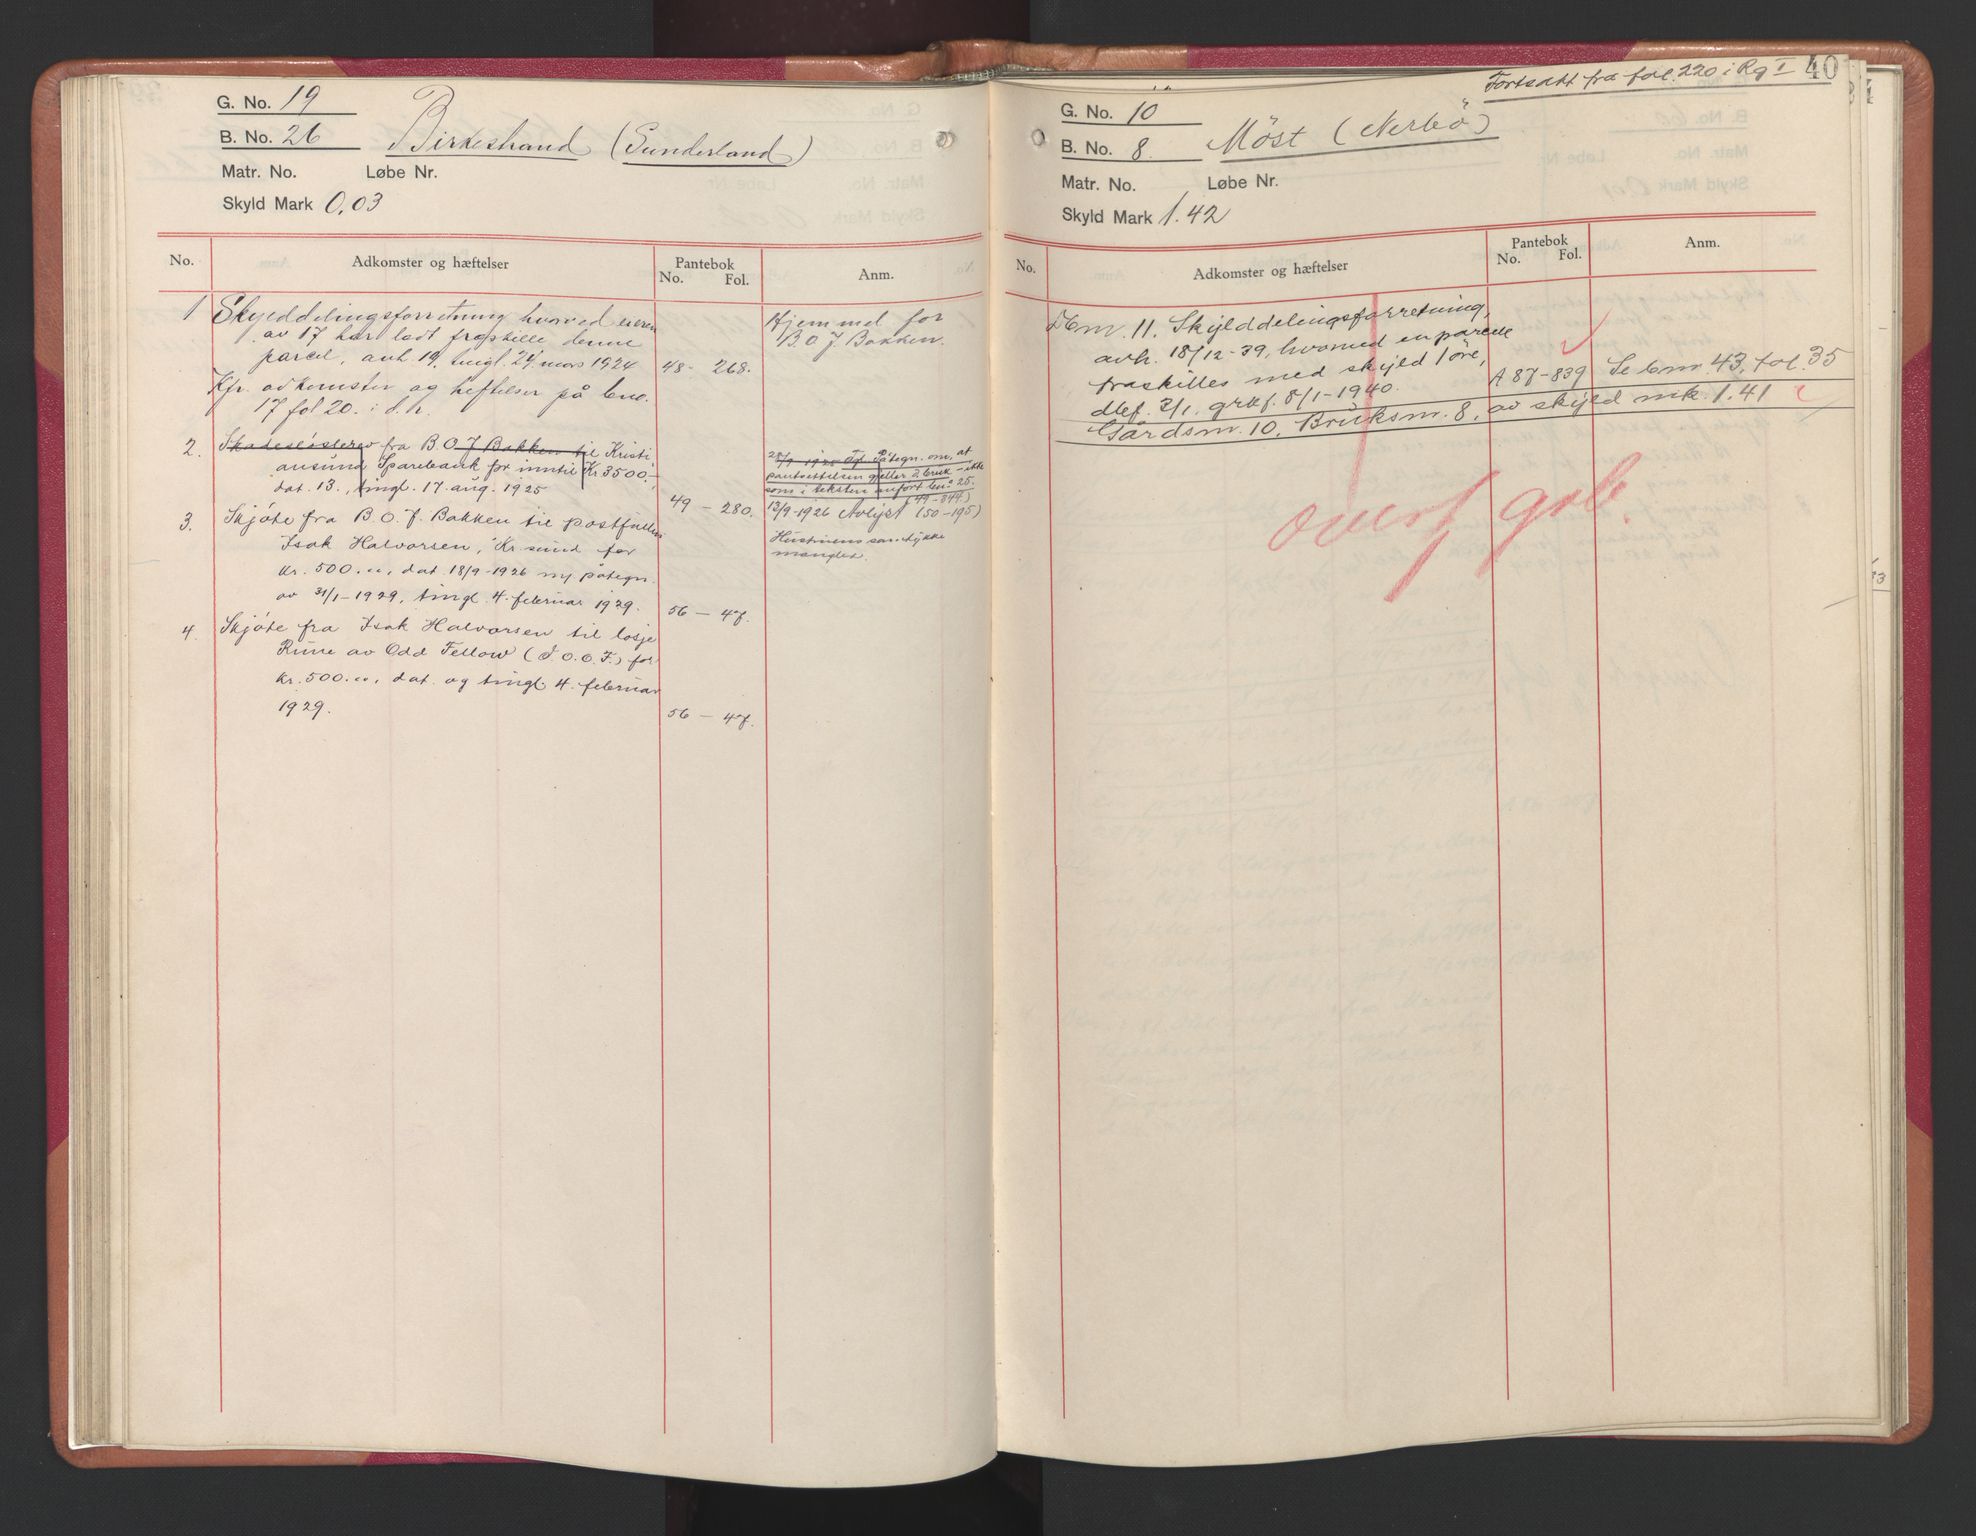 G. No. 19
B. No. 26 Birkestrand (Sunderland)
Matr. No. Løbe Nr.
Skyld Mark 0,03
No. Adkomster og hæftelser Pantebok No. Fol. Anm.
1 Skylddelingsforretning hvorved eieren
av 17 har ladt fraskille denne
parcel, avh. 19, tingl. 24. mars 1924 48 - 268.
Hjemmel for
B. O. J. Bakken.
Kfr. adkomster og heftelser på bno.
17 fol 20. i. d. r.
2. Skadesløsbrev fra B. O. J. Bakken til Kristi
ansund Sparebank for inntil Kr 3500.-,
dat. 13., tingl. 17. aug. 1925 49 - 280.
28/9 1925 Tgl. Påtegn. om, at
pantrettelsen gjeller 2 bruk - ikke
som i teksten anført bno 25.
(49 - 344)
13/9-1926 Avlyst (50-195)
3. Skjøte fra B. O. J. Bakken til postfullm
Isak Halvorsen, Kr.sund for
kr. 500.00, dat. 18/9-1926 ny påtegn.
av 31/1-1929, tingl. 4. februar 1929. 56 - 47.
Hustruens samtykke
mangler.
4. Skjøte fra Isak Halvorsen til losje
Rune av Odd Fellow (I. O. O. F.) for
kr. 500.00, dat. og tingl. 4. februar
1929. 56 - 47.
Fortsatt fra fol. 220 i Rg I 40
G. No. 10
B. No. 8. Møst (Nerbø)
Matr. No. Løbe Nr.
Skyld Mark 1.42
No. Adkomster og hæftelser Pantebok No. Fol. Anm.
11. Skylddelingsforretning,
avh. 18/12-39, hvorved en parcell
fraskilles med skyld 1 øre,
dbf. 3/1. grkf. 8/1-1940. A 87-839 Se bnr 43, fol. 35
Gårdsnr. 10, Bruksnr. 8, av skyld mk. 1.41
overf grb.